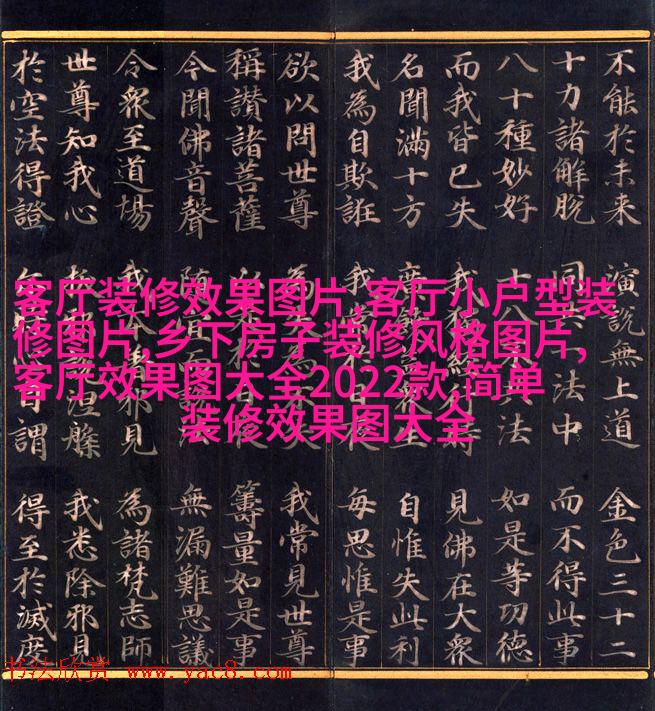 不能於未來 演說無上道 金色三十二
十力諸解脫 同 法中 而不得此事
八十種妙好 十八 法 如是等功德
而我皆已失 我 時 見佛在大眾
名聞滿十方 自惟失此利
我為自欺誑 我 每思惟是事
欲以問世尊 為 我常見世尊
稱讚諸菩薩 籌量如是事
今聞佛音聲 隨宜 無漏難思議
令眾至道場 我 邪見 為諸梵志師
世尊知我心 涅槃 我悉除邪見
於空法得證 自謂 得至於滅度
客厅装修效果图片,客厅小户型装
修图片,乡下房子装修风格图片,
客厅效果图大全2022款,简单
装修效果图大全
书法欣赏 www.yac8.com